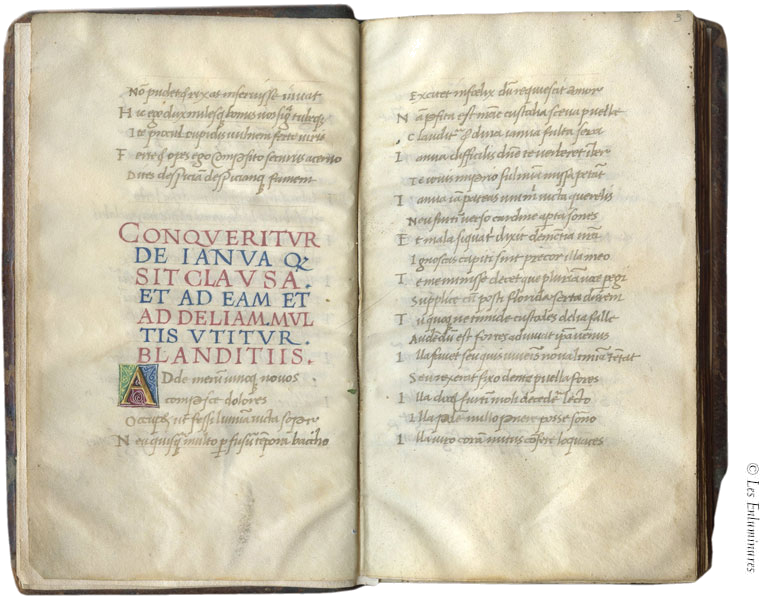 Nō pudet & rixas inseruisse iuvat
Hic ego dux milesq; bonus vos signa tubeq;
Ite procul cupidis vulnera ferte viris
Ferte & opes ego cōposito securus acervo
Dites despiciā despiciāq; famem
CONQVERITVR
DE IANVA Q
SIT CLAVSA.
ET AD EAM ET
AD DELIAM. MVL
TIS VTITVR.
BLANDITIIS.
Adde merū vinoq; novos
compesce dolores
Occupet ut fessi lumina victa sopor
Neu quisq; multo pfusū tēpora baccho
3
Excitet infoelix dū requiescit amor
Nā posita est nr̄ae custodia sceva puelle
Claudit̄ & dura ianua fulta sera
Ianua difficilis dn̄e te verberet iber
Te iovis impio fulmina missa petāt
Ianua iā pateas victa querelis
Neu furti verso cardine apta sones
Et mala siqua dixit demētia nr̄a
Ignoscas capiti sint precor illa meo
Te meminisse decet que plurīa voce pegi
Supplice cū posti florida serta darem
Tu quoq; ne timide custodes delia falle
Audēdū est fortes adiuvat ipā venus
Illa favet seu quis iuvenis nova limīa tētat
Seu reserat fixo dente puella fores
Illa docet furti moli decedē lecto
Illa pedē nullo ponere posse sono
Illa viro corā nutus cōferre loquaces
© Les Enluminures